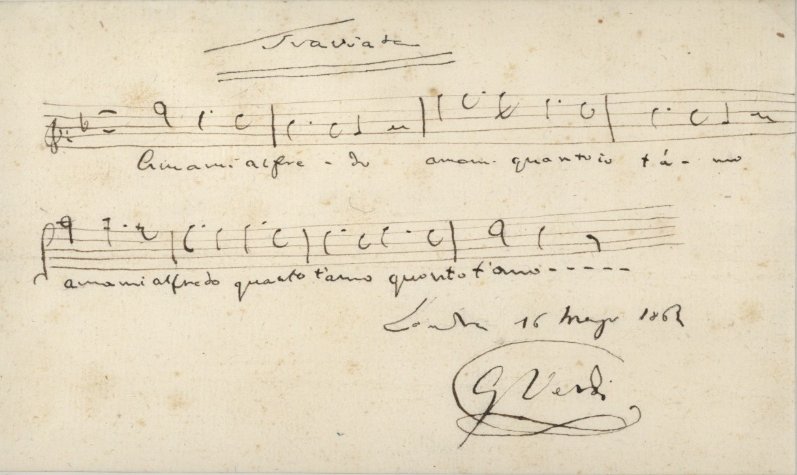 Traviata
Amami alfre - do amami quanto io t'á - mo
amami alfredo quanto t'amo quanto t'amo - - - - - -
Londra 16 Mago 1862
G Verdi